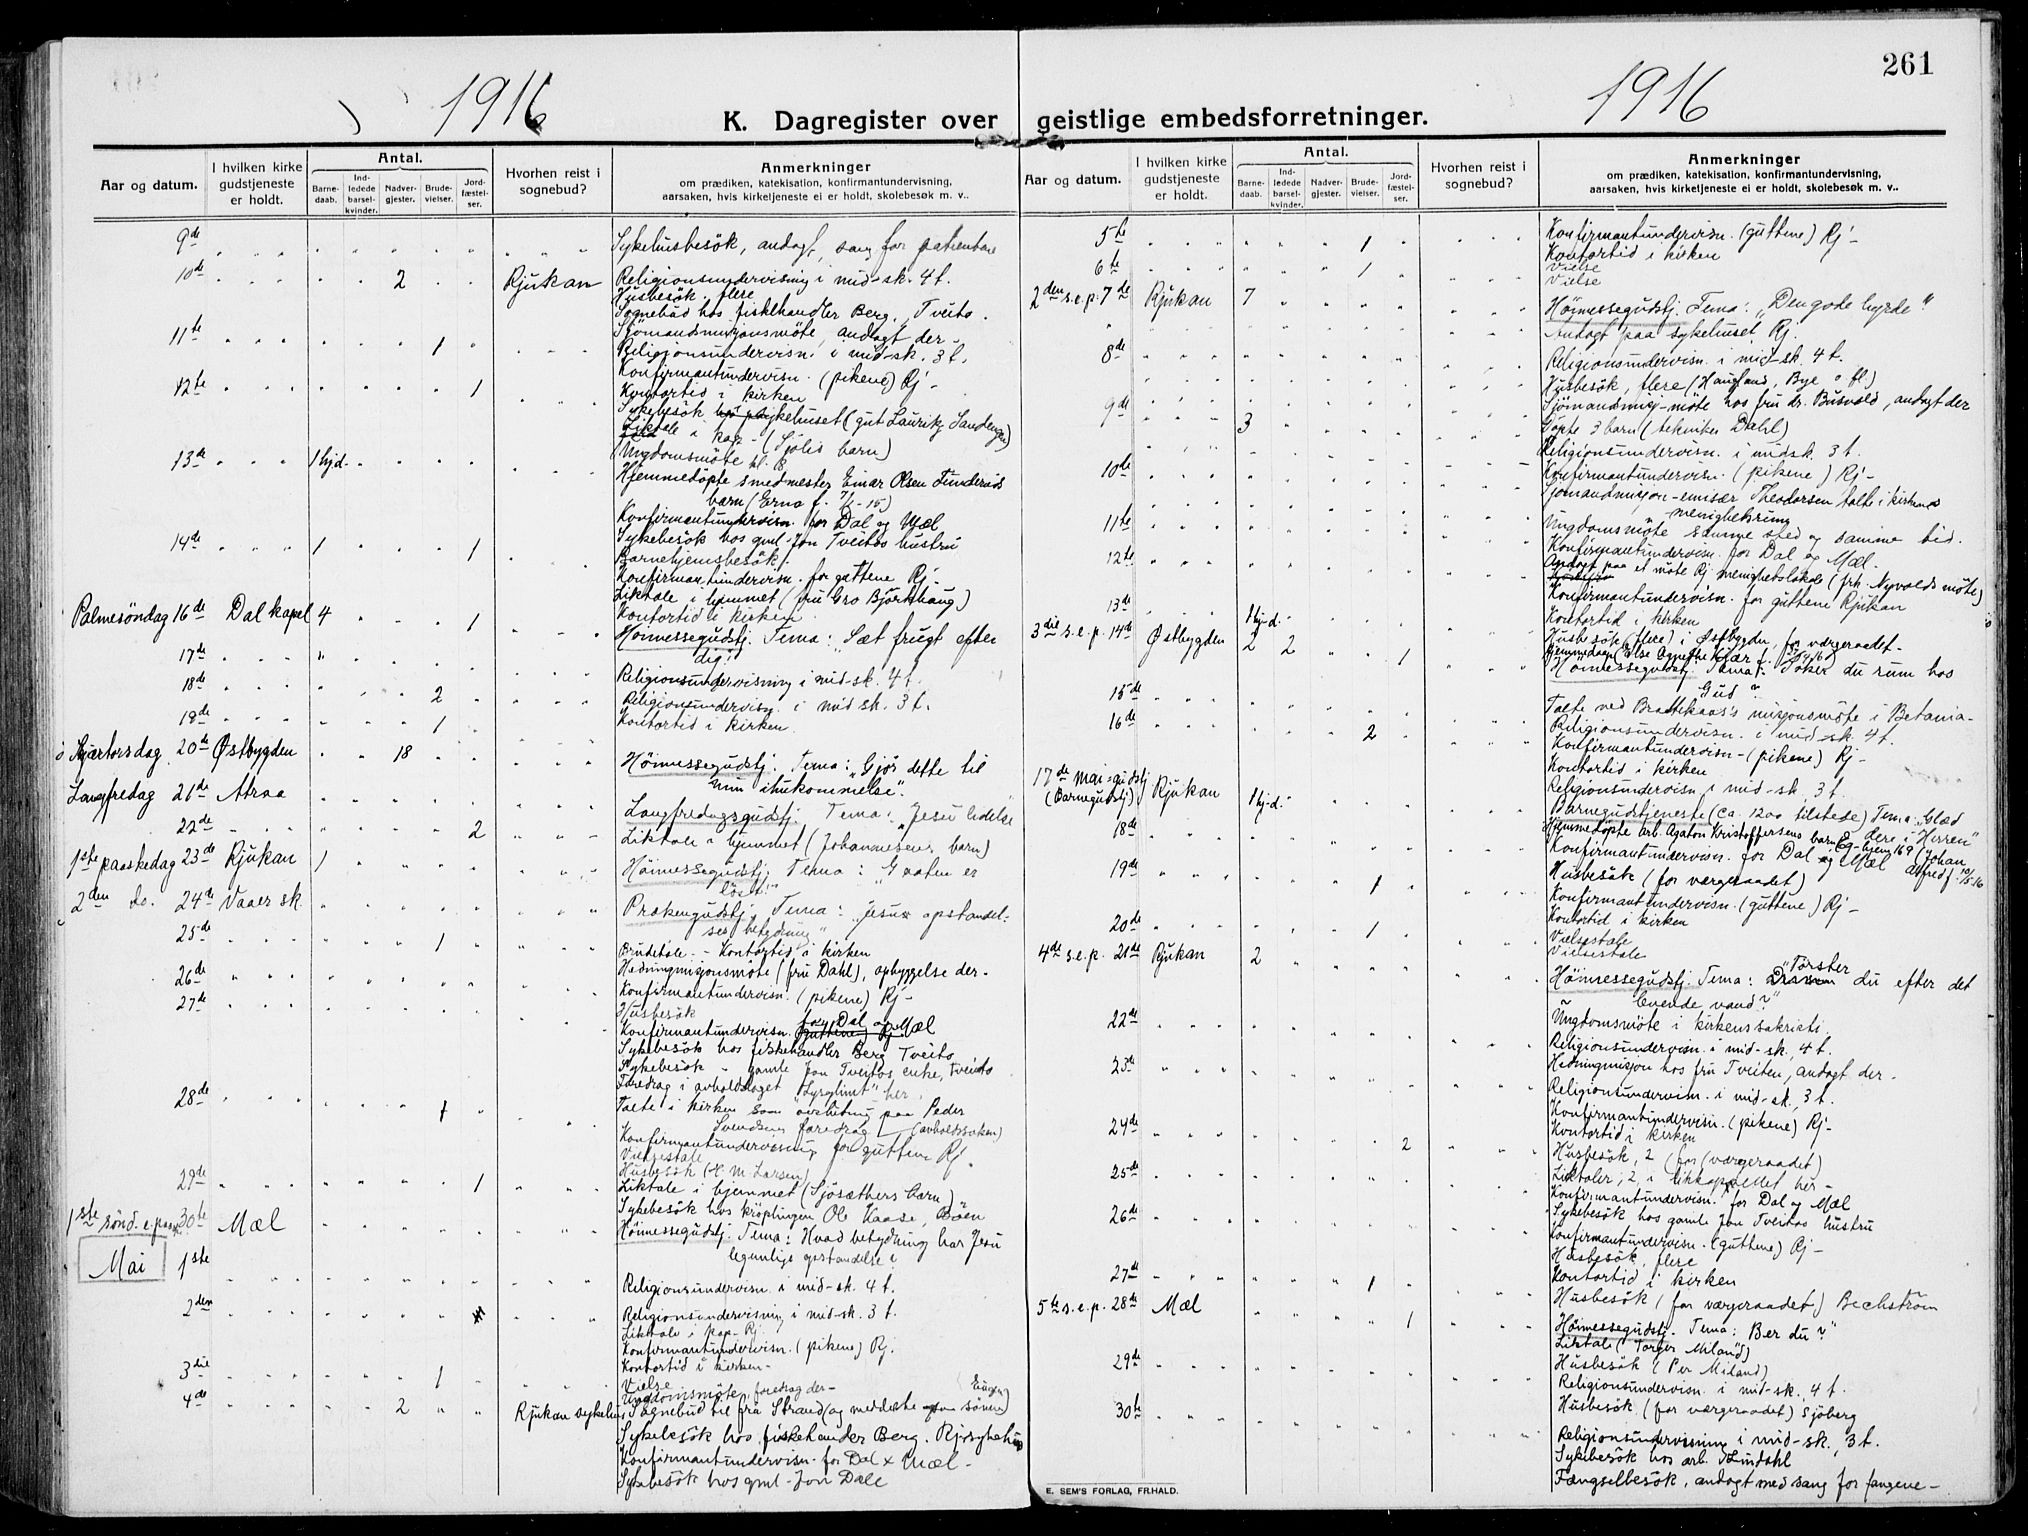 1916
K. Dagregister over
Aar og datum.
I hvilken kirke
gudstjeneste
er holdt.
Antal.
Barne-
daab.
Ind-
ledede
barsel-
kvinder.
Nadver-
gjester.
Brude-
vielser.
Jord-
fæstel-
ser.
Hvorhen reist i
sognebud?
Anmerkninger
om prædiken, katekisation, konfirmantundervisning,
aarsaken, hvis kirketjeneste ei er holdt, skolebesøk m. v..
9de Sykehusbesök, andagt, sang for patientene
10de 2 Rjukan Religionsundervisning i mid-sk. 4 t.
Husbesök, flere
Sognebud hos fiskehandler Berg, Tveito.
Sjömandsmisjonsmöte, andagt der-
11te 1 Religionsundervisn. i mid-sk. 3 t.
Konfirmantundervisn. (pikene) Rj-
12te 1 Kontortid i kirken
Sykebesök sykehuset (gut Lauritz Sandengen)
Liktale i kap- (Sjölis barn)
Ungdomsmöte kl. 8
13de 1 hjd. Hjemmedöpte smedmester Einar Olsen
barn (Erna f.
Konfirmantundervisn. for Dal og Mæl
Sykebesök hos gml. Jon Tveitos hustru
14de 1 1 Barnehjemsbesök.
Konfirmantundervisn. for guttene Rj-
Liktale i hjemmet (fru Gro Björkhaug)
Kontortid i kirken
Palmesöndag 16de Dal kapel 4 1 Höimessegudstj. Tema: Sæt frugt efter
dig!
17de Religionsundervisning i mid-sk. 4 t.
18de 2 Religionsundervisn. i mid sk. 3 t.
18de 1 Kontortid i kirken
Skjærtorsdag 20de Østbygden 18 Höimessegudstj. Tema: "Gjör dette til
min ihukommelse".
Langfredag 21de Atraa Langfredagsgudstj. Tema: "Jesu lidelse
22de 2 Liktale i hjemmet (Johannesens barn)
1ste paaskedag 23de Rjukan 1 Höimessegudstj. Tema: "Graaten er
löst!"
2den do. 24de Vaaer sk. Prækengudstj. Tema: "Jesus opstandel-
ses betydning"
25de 1 Brudetale - Kontortid i kirken
Hedningmisjonsmöte (fru Dahl), opbyggelse der-
26de Konfirmantundervisn. (pikene) Rj-
27de Husbesök
Konfirmantundervisn. for Dal og Mæl
Sykebesök hos fiskehandler Berg Tveito
Sykebesök - gamle Jon Tveitos enke, Tveito
Foredrag i avholdslaget "Lysglimt" her
28de 1 Talte i kirken som avslutning paa Peder
Svendsens foredrag (avholdssaken)
Konfirmantundervisning for guttene Rj.
Vielsestale
Husbesök (H. M. Larsen)
29de 1 Liktale i hjemmet (Sjösæthers barn)
Sykebesök hos kröplingen Ole Kaase, Böen
1ste sönd. e. paaske 30te Mæl Höimessegudstj. Tema: Hvad betydning har Jesu
legemlige opstandelse?
Mai 1ste Religionsundervisn. i mid-sk. 4 t.
2den Religionsundervisning i mid-sk. 3 t.
Liktale i kap- Rj.
Konfirmantundervisn. (pikene) Rj.
3die 1 Kontortid i kirken-
Vielse
Ungdomsmöte, foredrag der-
4de 2 Rjukan sykehus Sognebud til fru Strand (og meddelte sönnen)
Sykebesök hos fiskehandler Berg. Rj. sykehus
Konfirmantundervisn. for Dal x Mæl-
Sykebesök hos gml. Jon Dale
261
1916
geistlige embedsforretninger.
Aar og datum.
I hvilken kirke
gudstjeneste
er holdt.
Antal.
Barne-
daab.
Ind-
ledede
barsel-
kvinder.
Nadver-
gjester.
Brude-
vielser.
Jord-
fæstel-
ser.
Hvorhen reist i
sognebud?
Anmerkninger
om prædiken, katekisation, konfirmantundervisning,
aarsaken, hvis kirketjeneste ei er holdt, skolebesøk m. v..
5te 1 Konfirmantundervisn. (guttene) Rj-
Kontortid i kirken
Vielse
6te 1 Vielse
2den s.e.p. 7de Rjukan 7 Höimessegudstj. Tema: "Den gode hyrde"
Andagt paa sykehuset Rj.
8de Religionsundervisn. i mid-sk. 4 t.
Husbesök, flere (Haugland, Bye o fl.)
9de 3 Sjömandsmisj-möte hos fru dr. Busvold, andagt der
Döpte 3 barn (tekniker Dahl)
Religionsundervisn. i midsk. 3 t.
10de Konfirmantundervisn. (pikene) Rj-
Sjömandsmisjon-emisær Theodorsen talte i kirkens
menighetsring
11te Ungdomsmöte samme sted og samme tid.
Konfirmantundervisn. for Dal og Mæl.
12te Andagt paa et möte Rj menighetslokale (frk. Nyvolds möte)
Konfirmantundervisn. for guttene Rjukan
13de 1 hj-d. Kontortid i kirken
Husbesök (flere) i Østbygden, for værgeraadet-
3die s.e.p. 14de Østbygden 2 2 1 Höimessegudstj. Tema: Söker du rum hos
Gud?
15de Talte ved Brattekaas's misjonsmöte i Betania-
Religionsundervisn. i mid-sk. 4 t.
16de 2 Konfirmantundervisn- (pikene) Rj-
Kontortid i kirken
Religionsundervisn i mid-sk. 3 t.
17de Mai=gudstj
(Barnegudstj) Rjukan 1 hj-d. Barnegudstjeneste (ca. 1200 tilstede) Tema: "Glæd
dere i Herren"
Hjemmedöpte arb. Agaton Kristoffersens barn Eg-hjem 169 (Johan
Alfred f. 10/5-16
18de Konfirmantundervisn. for Dal og Mæl
Husbesök (for værgeraadet)
19de 1 Konfirmantundervisn. (guttene) Rj-
Kontortid i kirken
Vielsestale
20de 1 Vielsestale
4de s.e.p. 21de Rjukan 2 Höimessegudstj. Tema: "Törster du efter det
levende vand?"
Ungdomsmöte i kirkens sakristi
22de Religionsundervisn. i mid-sk, 4 t.
Hedningmisjon hos fru Tveiten, andagt der-
23de Religionsundervisn. i mid-sk, 3 t.
Konfirmantundervisn. (pikene) Rj-
Kontortid i kirken
24de 2 Husbesök, 2 (for (værgeraadet)
Liktaler, 2, i likkapellet her-
25de Konfirmantundervisn. for Dal og Mæl
Sykebesök hos gamle Jon Tveitos hustru
26de Konfirmantundervisn. (guttene) Rj-
Husbesök, flere
Kontortid i kirken
27de 1 Husbesök (for værgeraadet) Bechström
5te s.e.p. 28de Mæl 1 Höimessegudstj. Tema: Ber du?"
Liktale (Torger Miland)
Husbesök (Per Miland)
29de Religionsundervisn. i mid-sk, 4 t.
Husbesök (for værgeraadet) Sjöberg
30te Religionsundervisning i mid-sk., 3 t.
Sykebesök hos arb. Lindahl
Fængselbesök, andagt med sang for fangene-
E. SEM'S FORLAG, FR.HALD.